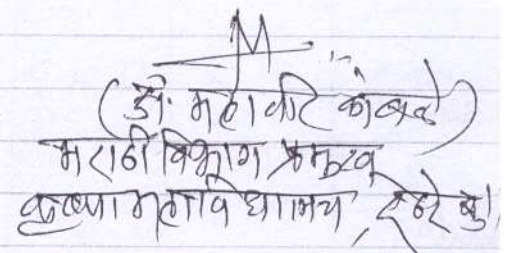 (डॉ. महावीर कांबळे)
मराठी विभाग प्रमुख
कृष्णा महाविद्यालय, रेठरे बु।